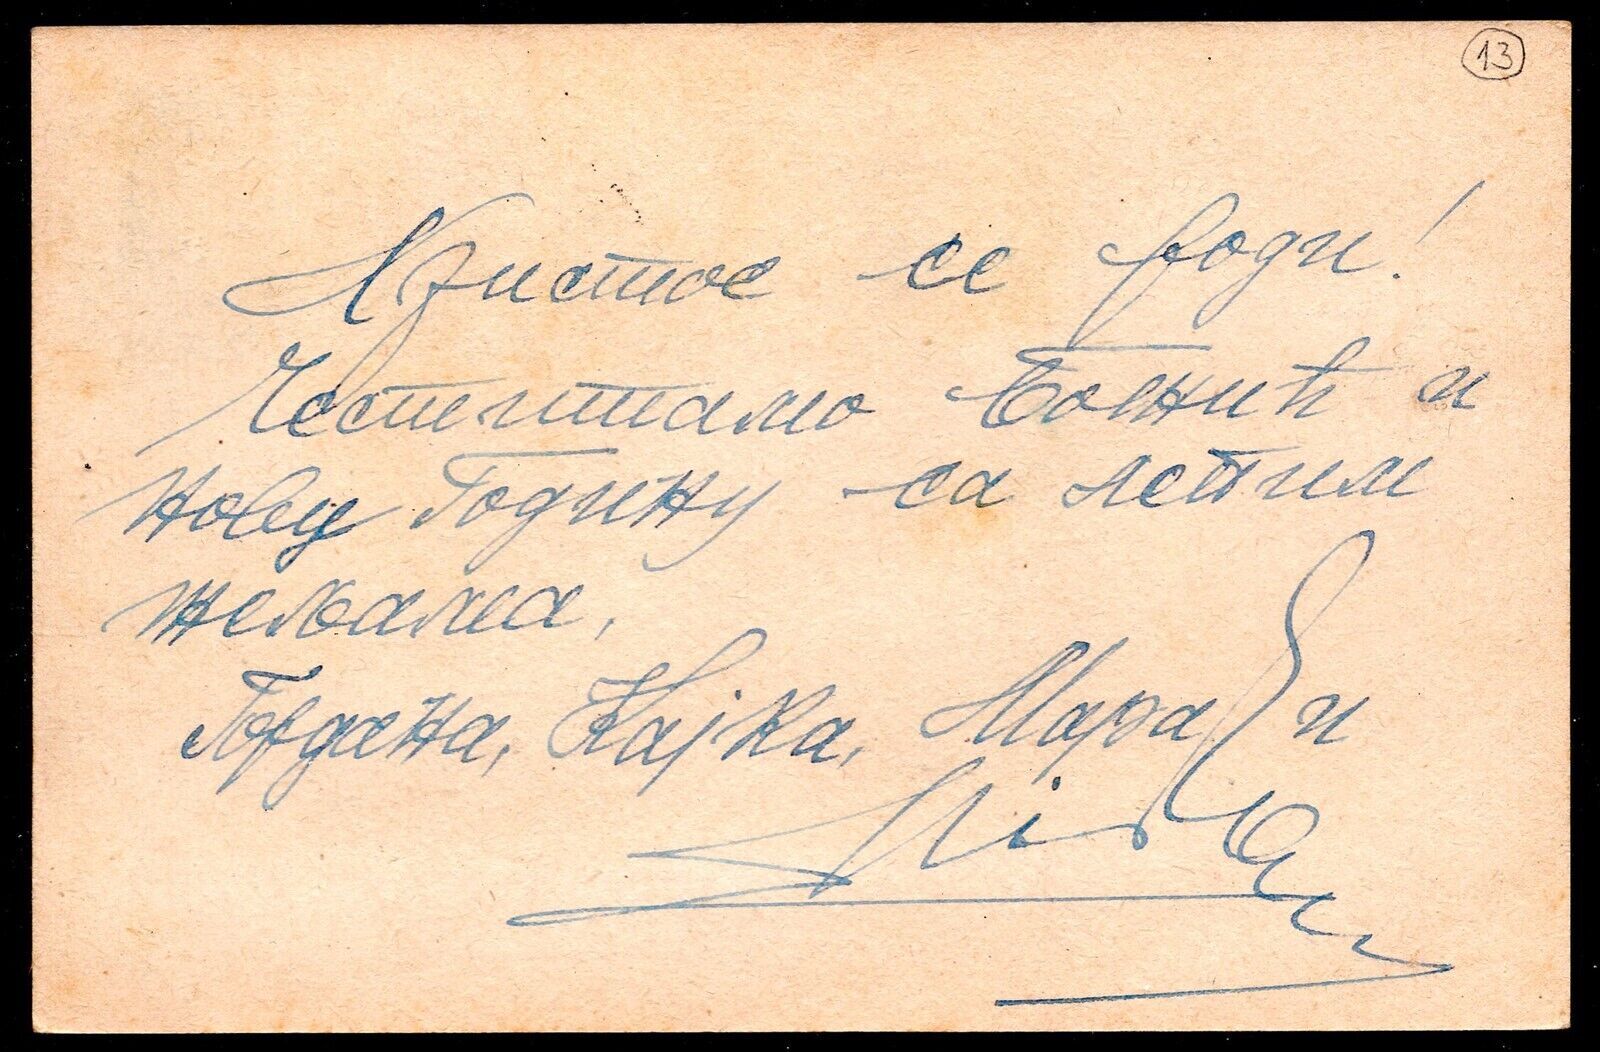 13
Христос се роди!
Честитамо Божић и
Нову Годину са лепим
жељама,
Гордана, Кајка, Мара и